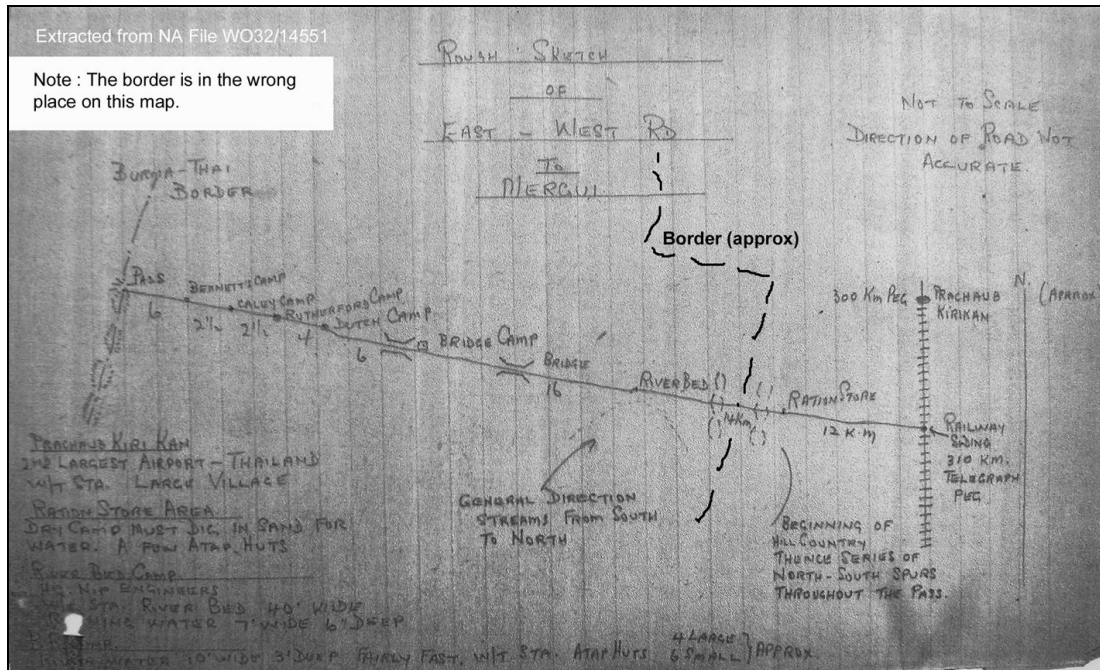 Extracted from NA File WO32/14551
Note : The border is in the wrong
place on this map.
ROUGH SKETCH
OF
EAST - WEST RD
TO
MERGUI
NOT TO SCALE
DIRECTION OF ROAD NOT
ACCURATE.
BURMA-THAI
BORDER
Border (approx)
PASS
BENNETTS CAMP
CALEY CAMP
RUTHERFORD CAMP
DUTCH CAMP
BRIDGE CAMP
BRIDGE
RIVER BED
RATION STORE
6
2½
2½
4
6
16
14Km
12 K.M
300 KM PEG
PRACHAUB
KIRIKAN
N.
(APPROX)
RAILWAY
SIDING
310 KM.
TELEGRAPH
PEG
GENERAL DIRECTION
STREAMS FROM SOUTH
TO NORTH
BEGINNING OF
HILL COUNTRY
THENCE SERIES OF
NORTH-SOUTH SPURS
THROUGHOUT THE PASS.
PRACHAUB KIRI KAN
2ND LARGEST AIRPORT - THAILAND
W/T STA. LARGE VILLAGE
RATION STORE AREA.
DRY CAMP MUST DIG IN SAND FOR
WATER. A FEW ATAP HUTS
RIVER BED CAMP
HQ. NIP ENGINEERS
STA. RIVER BED 40' WIDE
WATER 7' WIDE 6" DEEP
WATER 10' WIDE 3' DEEP FAIRLY FAST. W/T STA. ATAP HUTS 4 LARGE
6 SMALL } APPROX.